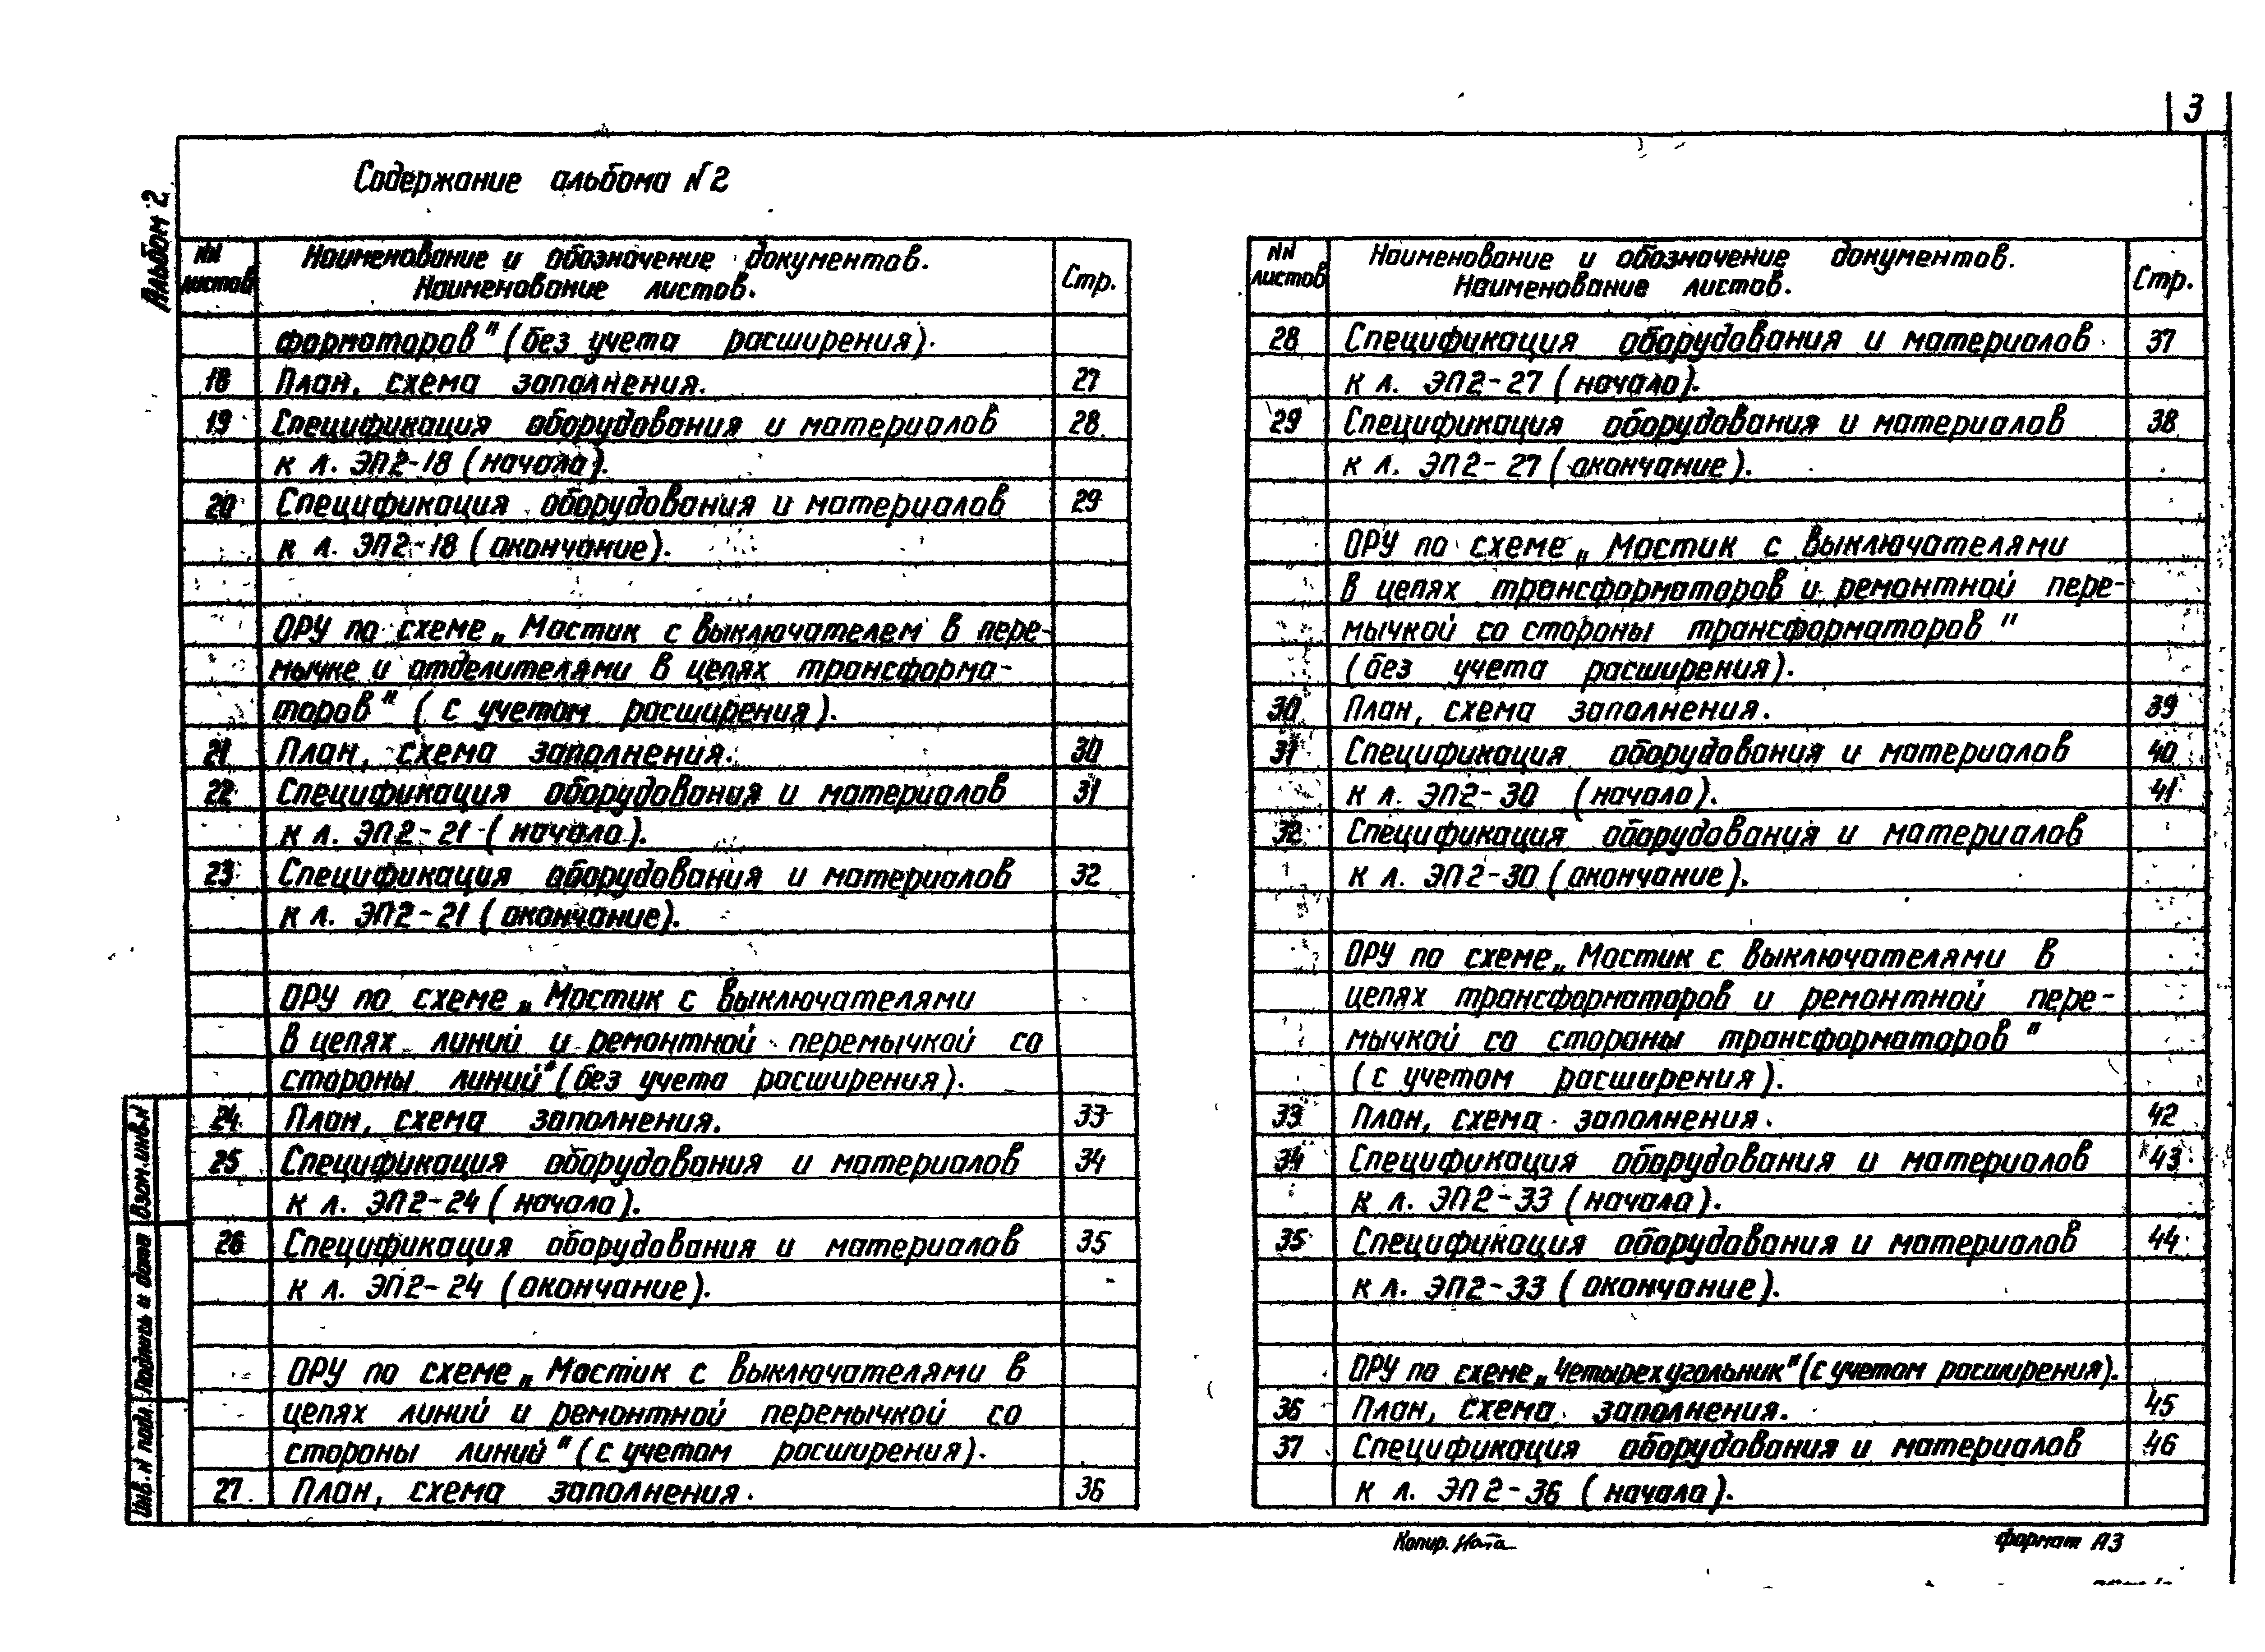 3
Альбом 2
Содержание альбома N2
NN листов
Наименование и обозначение документов.
Наименование листов.
Стр.
форматоров" (без учета расширения).
18 План, схема заполнения. 27
19 Спецификация оборудования и материалов 28
к л. ЭП2-18 (начало).
20 Спецификация оборудования и материалов 29
к л. ЭП2-18 (окончание).
ОРУ по схеме „Мостик с выключателем в пере-
мычке и отделителями в цепях трансформа-
торов" (с учетом расширения).
21 План, схема заполнения. 30
22 Спецификация оборудования и материалов 31
к л. ЭП2-21 (начало).
23 Спецификация оборудования и материалов 32
к л. ЭП2-21 (окончание).
ОРУ по схеме „Мостик с выключателями
в цепях линий и ремонтной перемычкой со
стороны линий" (без учета расширения).
24 План, схема заполнения. 33
25 Спецификация оборудования и материалов 34
к л. ЭП2-24 (начало).
26 Спецификация оборудования и материалов 35
к л. ЭП2-24 (окончание).
ОРУ по схеме „Мостик с выключателями в
цепях линий и ремонтной перемычкой со
стороны линий" (с учетом расширения).
27 План, схема заполнения. 36
NN листов
Наименование и обозначение документов.
Наименование листов.
Стр.
28 Спецификация оборудования и материалов 37
к л. ЭП2-27 (начало).
29 Спецификация оборудования и материалов 38
к л. ЭП2-27 (окончание).
ОРУ по схеме „Мостик с выключателями
в цепях трансформаторов и ремонтной пере-
мычкой со стороны трансформаторов"
(без учета расширения).
30 План, схема заполнения. 39
31 Спецификация оборудования и материалов 40
к л. ЭП2-30 (начало). 41
32 Спецификация оборудования и материалов
к л. ЭП2-30 (окончание).
ОРУ по схеме „Мостик с выключателями в
цепях трансформаторов и ремонтной пере-
мычкой со стороны трансформаторов"
(с учетом расширения).
33 План, схема заполнения. 42
34 Спецификация оборудования и материалов 43
к л. ЭП2-33 (начало).
35 Спецификация оборудования и материалов 44
к л. ЭП2-33 (окончание).
ОРУ по схеме „Четырехугольник" (с учетом расширения).
36 План, схема заполнения. 45
37 Спецификация оборудования и материалов 46
к л. ЭП2-36 (начало).
Взам. инв. N
Подпись и дата
Инв. N подл.
Копир. Ната
формат А3